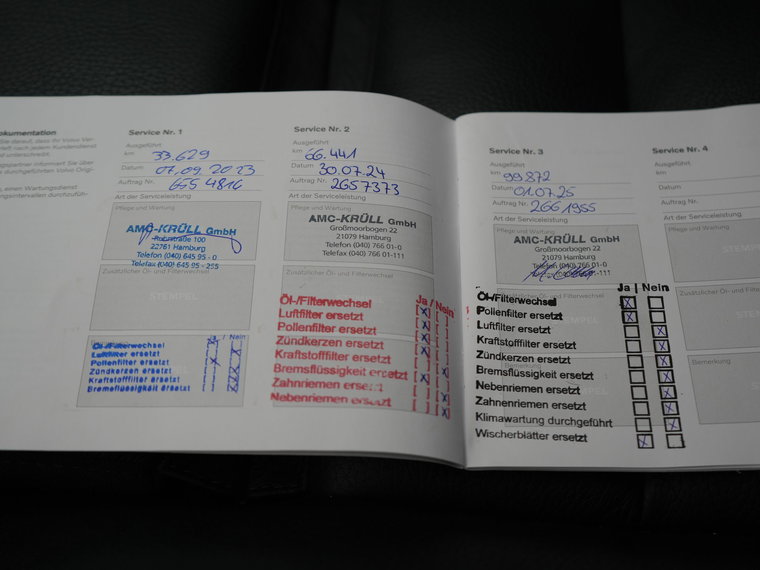 okumentation
Sie darauf, dass Ihr Volvo Ver-
Heft nach jedem Kundendienst
nd unterschreibt.
ngspartner informiert Sie über
durchgeführten Volvo Origi-
, einen Wartungsdienst
ngsintervallen durchzufüh-
Service Nr. 1
Ausgeführt
km 33.629
Datum 07.09.2023
Auftrag Nr. 655 4816
Art der Serviceleistung
Pflege und Wartung
AMC-KRÜLL GmbH
Ruhrstraße 100
22761 Hamburg
Telefon (040) 645 95 - 0
Telefax (040) 645 95 - 255
Zusätzlicher Öl- und Filterwechsel
STEMPEL
Ja / Nein
Öl-/Filterwechsel X
Luftfilter ersetzt X
Pollenfilter ersetzt X
Zündkerzen ersetzt X
Kraftstofffilter ersetzt X
Bremsflüssigkeit ersetzt X
Service Nr. 2
Ausgeführt
km 66.441
Datum 30.07.24
Auftrag Nr. 2657373
Art der Serviceleistung
Pflege und Wartung
AMC-KRÜLL GmbH
Großmoorbogen 22
21079 Hamburg
Telefon (040) 766 01-0
Telefax (040) 766 01-111
Zusätzlicher Öl- und Filterwechsel
Ja / Nein
Öl-/Filterwechsel [X] [ ]
Luftfilter ersetzt [X] [ ]
Pollenfilter ersetzt [X] [ ]
Zündkerzen ersetzt [X] [ ]
Kraftstofffilter ersetzt [ ] [X]
Bremsflüssigkeit ersetzt [X] [ ]
Zahnriemen ersetzt [ ] [X]
Nebenriemen ersetzt [ ] [X]
Service Nr. 3
Ausgeführt
km 99.872
Datum 01.07.25
Auftrag Nr. 266 1955
Art der Serviceleistung
Pflege und Wartung
AMC-KRÜLL GmbH
Großmoorbogen 22
21079 Hamburg
Telefon (040) 766 01-0
-111
Ja | Nein
Öl-/Filterwechsel X
Pollenfilter ersetzt X
Luftfilter ersetzt X
Kraftstofffilter ersetzt X
Zündkerzen ersetzt X
Bremsflüssigkeit ersetzt X
Nebenriemen ersetzt X
Zahnriemen ersetzt X
Klimawartung durchgeführt X
Wischerblätter ersetzt X
Service Nr. 4
Ausgeführt
km
Datum
Auftrag Nr.
Art der Serviceleistung
Pflege und Wartung
STEMPEL
Zusätzlicher Öl- und Filter
STEMPEL
Bemerkung